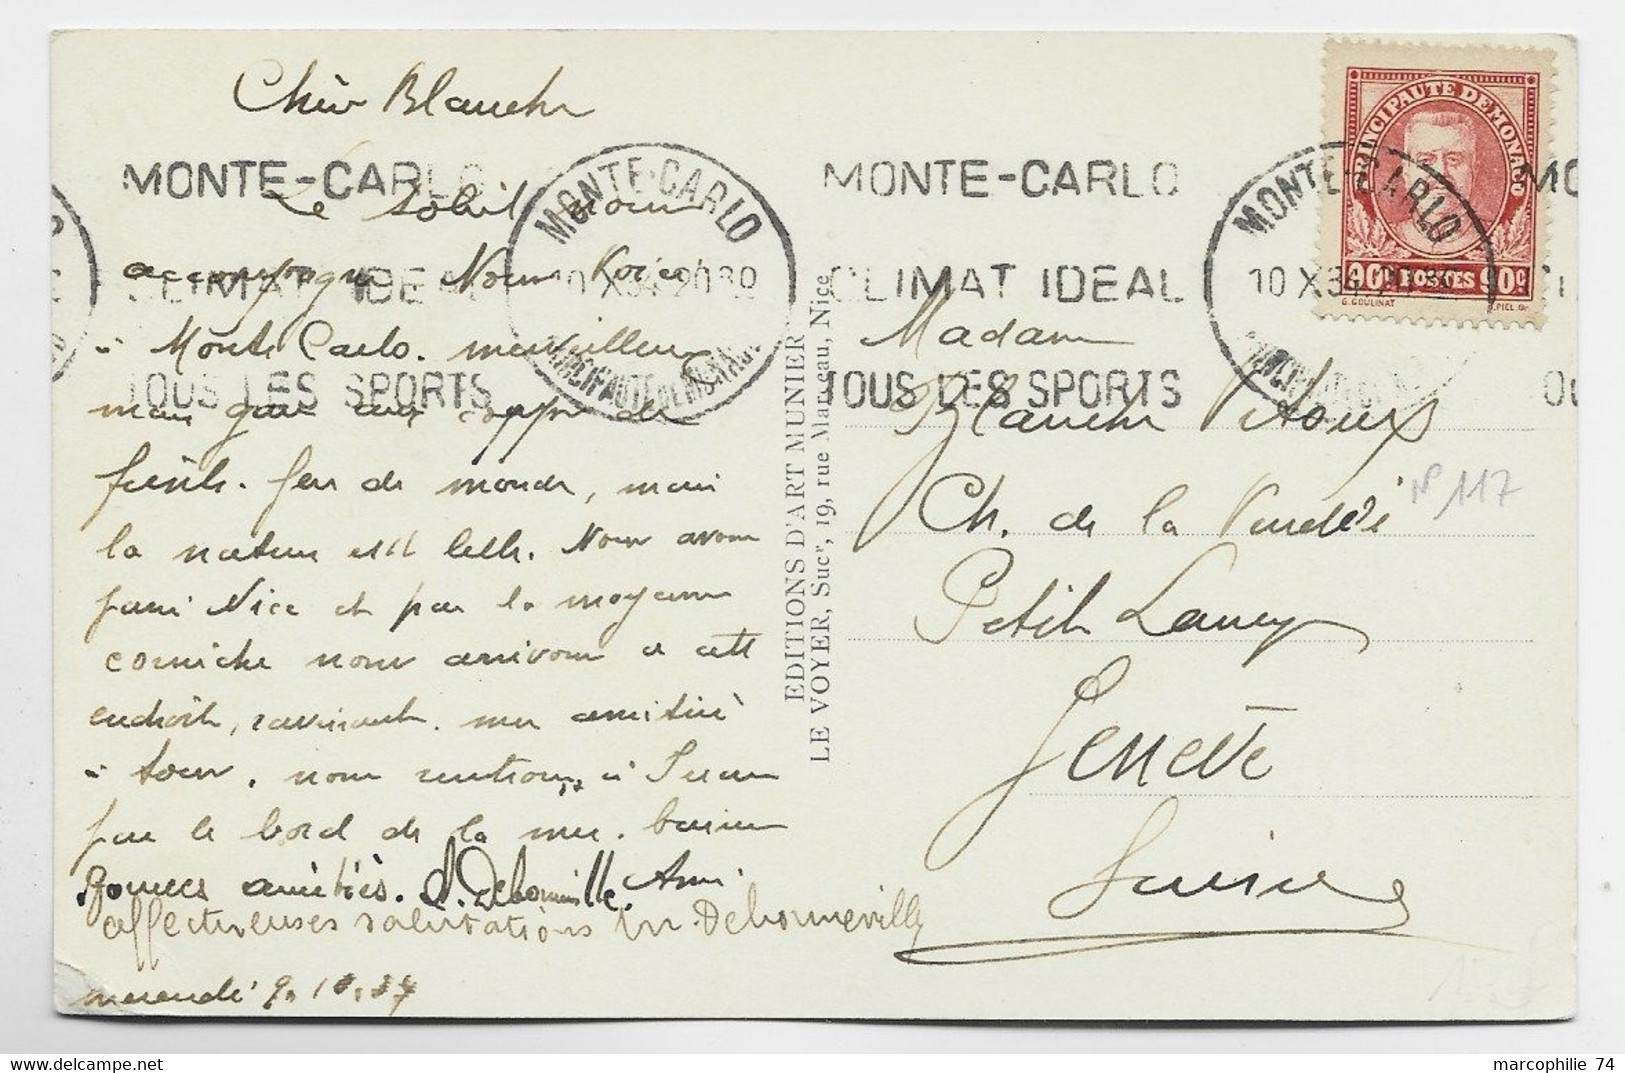 Chère Blanche
Le soleil nous
accompagne. Nous voici
à Monte Carlo. merveilleux
mais gare aux coups de
fusils. Peu de monde, mais
la nature est belle. Nous avons
passé Nice et par la moyenne
corniche nous arrivons à cette
endroit, ravissant. mes amitiés
à tous, nous rentrons à
par le bord de la mer. baisers
Bonnes amitiés.
affectueuses salutations m. Debonneville
mercredi 9.10.34
MONTE-CARLO
CLIMAT IDEAL
TOUS LES SPORTS
MONTE-CARLO
10 X 34 20 30
PRINCIPAUTÉ DE MONACO
EDITIONS D'ART MUNIER
LE VOYER, Sucr, 19, rue Marceau, Nice
MONTE-CARLO
CLIMAT IDEAL
TOUS LES SPORTS
MONTE-CARLO
10 X 34
PRINCIPAUTE DE MONACO
90c POSTES 90c
G. GOULINAT
Madame
Blanche Vitoux
Ch. de la Vendée
No 117
Petit Lancy
Genève
Suisse
marcophilie 74